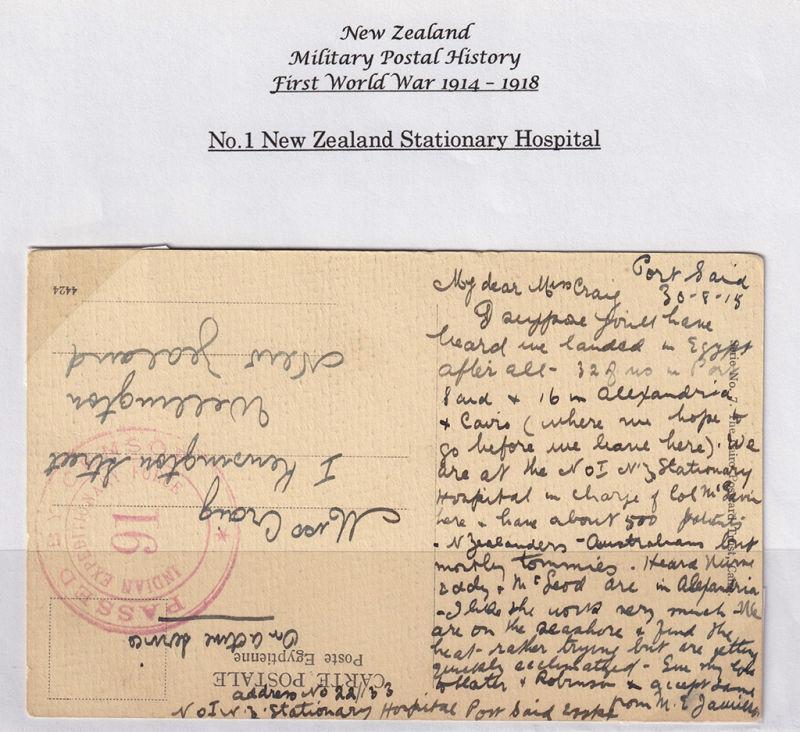 New Zealand
Military Postal History
First World War 1914 – 1918
No.1 New Zealand Stationary Hospital
Port Said
30-8-15
My dear Miss Craig
I suppose you'll have
heard we landed in Egypt
after all - 32 of us in Port
Said & 16 in Alexandria
& Cairo (where we hope to
go before we leave here). We
are at the No I N.Z Stationary
Hospital in charge of Col McGavin
here & have about 500 patients
- N Zealanders - Australians but
mostly Tommies. Heard Nurse
Eddy & McLeod are in Alexandria
- I like the work very much. We
are on the seashore & find the
heat rather trying but are getting
quickly acclimatized - Give my love
to Slater & Robinson & accept same
from M. E.
address No 22/133
No I N.Z. Stationary Hospital Port Said Egypt
CARTE POSTALE
Poste Egyptienne
On active service
Miss Craig
I Kensington Street
Wellington
New Zealand
4424
PASSED BY CENSOR
INDIAN EXPEDITIONARY FORCE
16
Serie No. 7. The Cairo Postcard Trust, Cairo